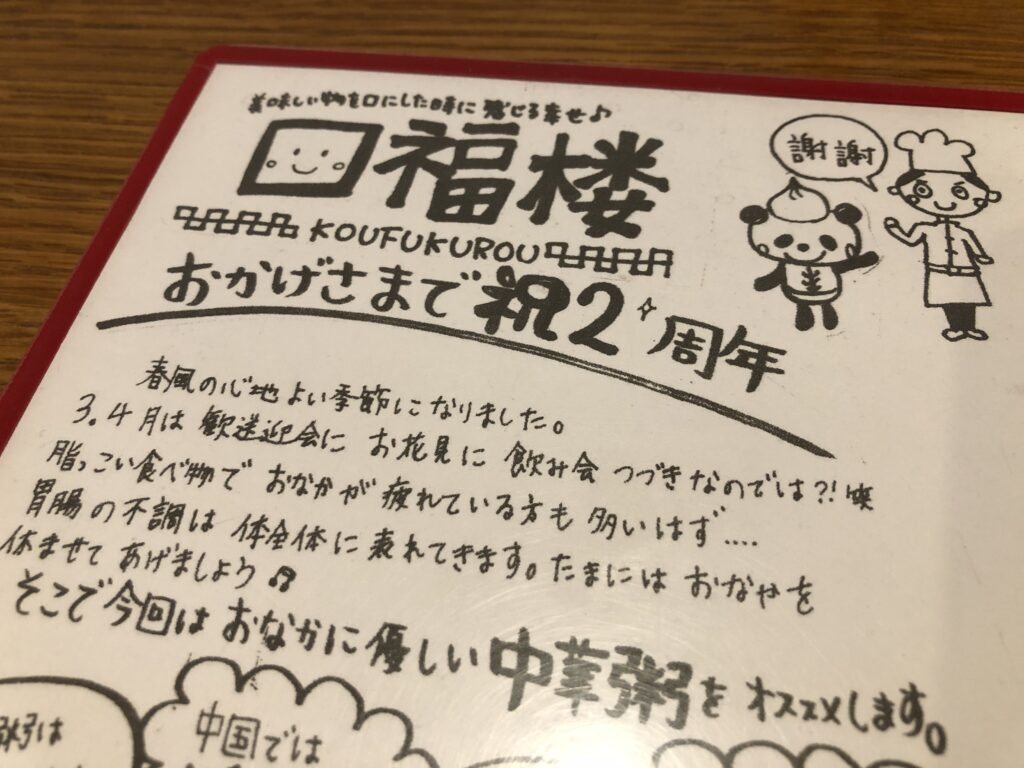 美味しい物を口にした時に感じる幸せ♪
口福楼
KOUFUKUROU
謝謝
おかげさまで祝2周年
春風の心地よい季節になりました。
3.4月は歓送迎会にお花見に飲み会つづきなのでは?!笑
脂っこい食べ物でおなかが疲れている方も多いはず....
胃腸の不調は体全体に表れてきます。たまにはおなかを
休ませてあげましょう♫
そこで今回はおなかに優しい中華粥をオススメします。
粥は
中国では